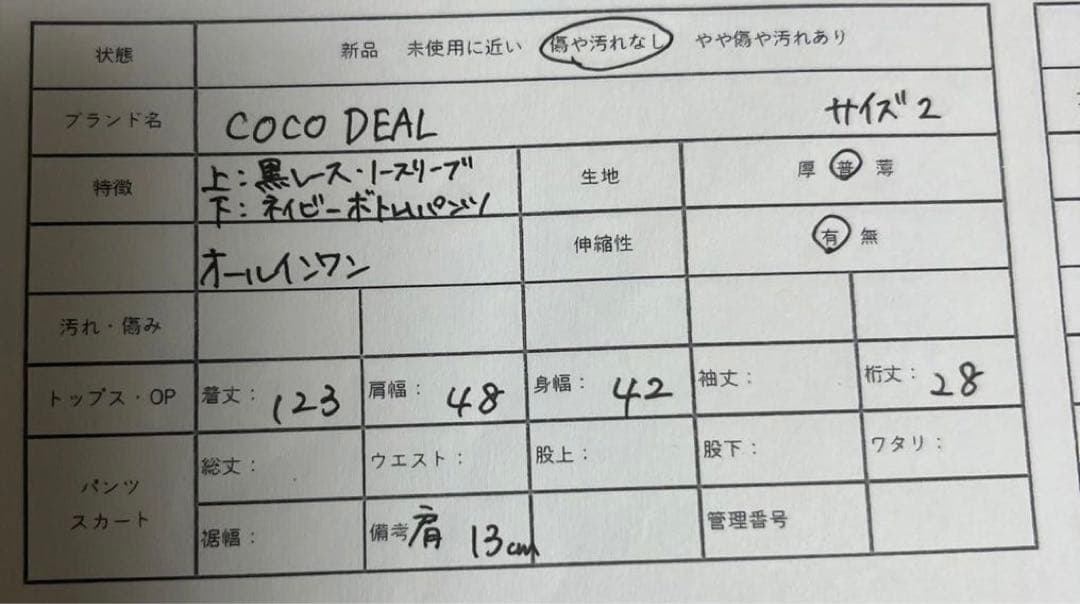 状態 新品 未使用に近い 傷や汚れなし やや傷や汚れあり
ブランド名 COCO DEAL サイズ2
特徴 上:黒レース・ノースリーブ 生地 厚 普 薄
下:ネイビーボトムパンツ
オールインワン 伸縮性 有 無
汚れ・傷み
トップス・OP 着丈: 123 肩幅: 48 身幅: 42 袖丈: 裄丈: 28
パンツ 総丈: ウエスト: 股上: 股下: ワタリ:
スカート 裾幅: 備考 肩 13cm 管理番号